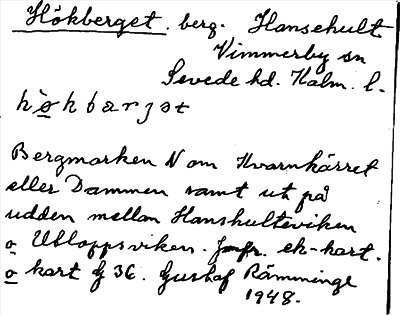 Hökberget. berg. Hansehult
Vimmerby sn
Sevede hd. Kalm. l.
hø̀kbærjət
Bergmarken N om Kvarnkärret
eller Dammen samt ut på
udden mellan Hanshulteviken
o Utloppsviken. Jmfr. ek-kart.
o kart G 36. Gustaf Rämminge
1948.